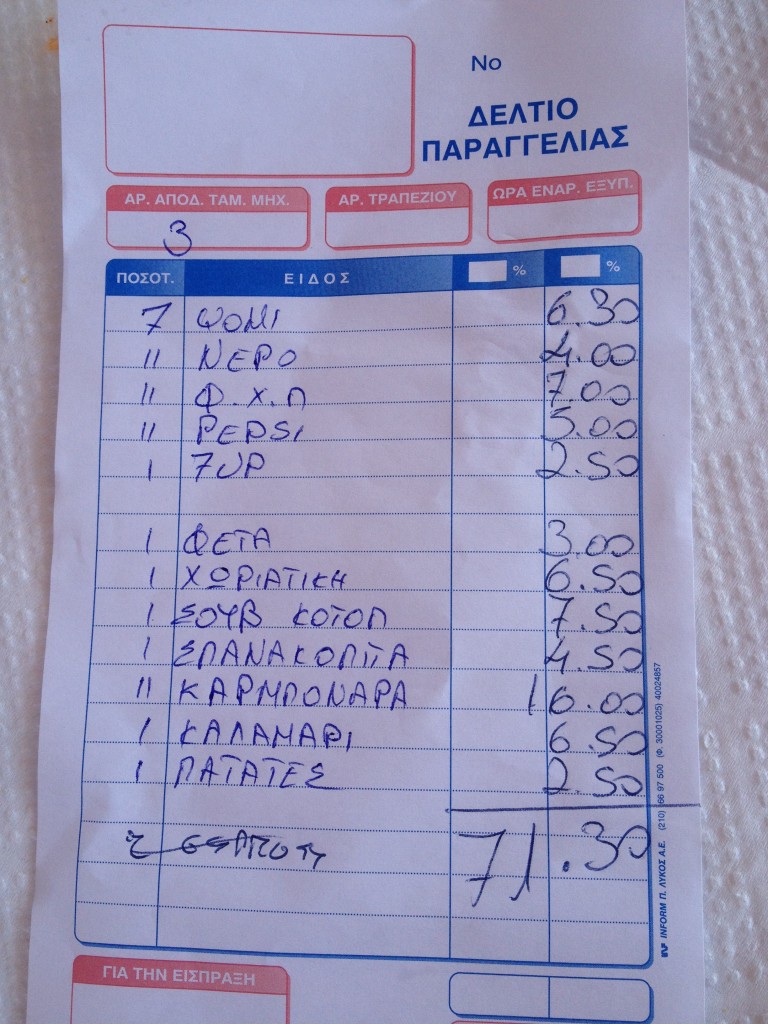 No
ΔΕΛΤΙΟ
ΠΑΡΑΓΓΕΛΙΑΣ
ΑΡ. ΑΠΟΔ. ΤΑΜ. ΜΗΧ. ΑΡ. ΤΡΑΠΕΖΙΟΥ ΩΡΑ ΕΝΑΡ. ΕΞΥΠ.
3
ΠΟΣΟΤ. ΕΙΔΟΣ % %
7 ΨΟΜΙ 6.30
11 ΝΕΡΟ 4.00
11 Φ.Χ.Π 7.00
11 PEPSI 5.00
1 7UP 2.50
1 ΦΕΤΑ 3.00
1 ΧΩΡΙΑΤΙΚΗ 6.50
1 ΣΟΥΒ ΚΟΤΟΠ 7.50
1 ΣΠΑΝΑΚΟΠΙΤΑ 4.50
11 ΚΑΡΜΠΟΝΑΡΑ 16.00
1 ΚΑΛΑΜΑΡΙ 6.50
1 ΠΑΤΑΤΕΣ 2.50
71.30
ΓΙΑ ΤΗΝ ΕΙΣΠΡΑΞΗ
INFORM Π. ΛΥΚΟΣ Α.Ε. (210) 66 97 500 (Φ. 30001025) 40024857